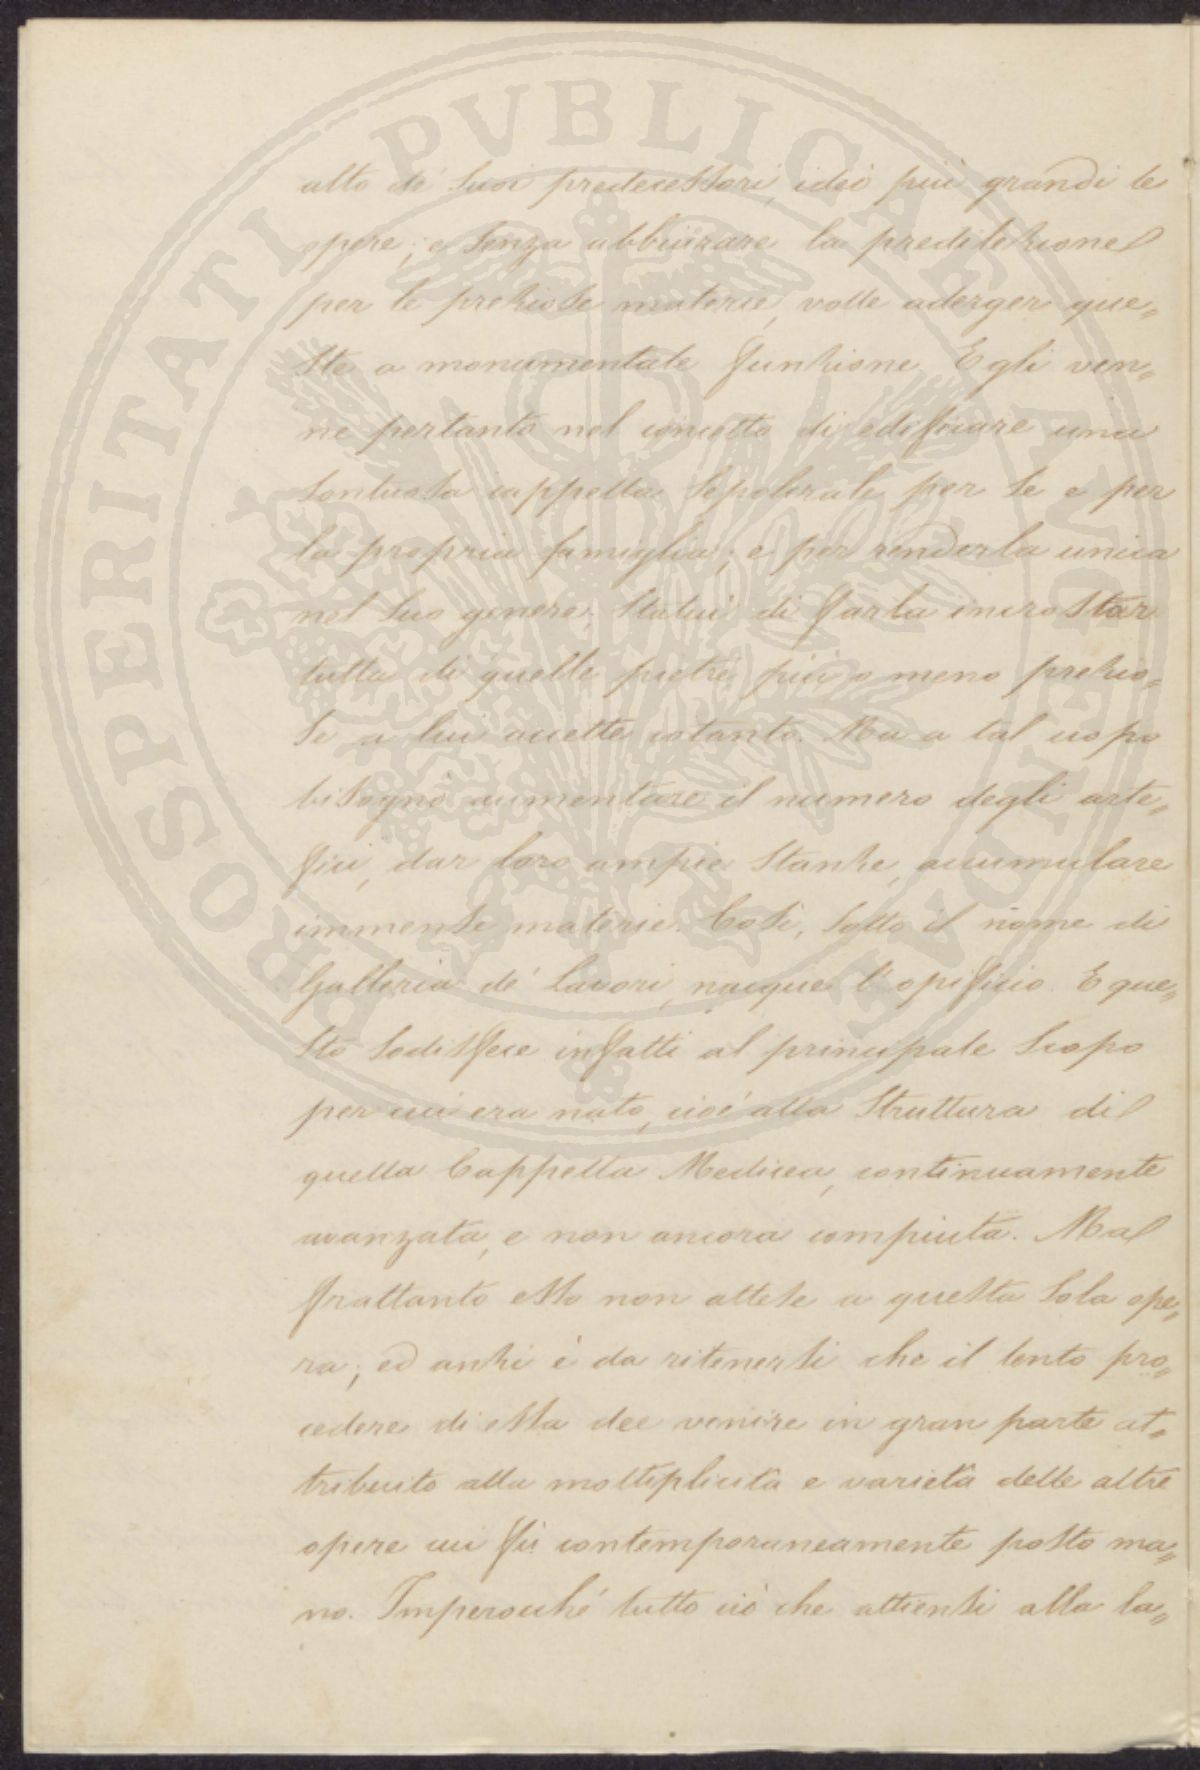 PROSPERITATI PVBLICAE AVGENDAE
alto de' suoi predecessori, ideò più grandi le
opere; e senza abbiurare la predilezione
per le preziose materie, volle aderger que„
ste a monumentale funzione. Egli ven„
ne pertanto nel concetto di edificare una
sontuosa cappella sepolcrale per se e per
la propria famiglia; e per renderla unica
nel suo genere, statuì di farla incrostar
tutta di quelle pietre più o meno prezio„
se a lui accette cotanto. Ma a tal uopo
bisognò aumentare il numero degli arte„
fici, dar loro ampie stanze, accumulare
immense materie. Così, sotto il nome di
Galleria de' lavori, nacque l'opificio. E que„
sto sodisfece infatti al principale scopo
per cui era nato, cioè alla struttura di
quella Cappella Medicea, continuamente
avanzata, e non ancora compiuta. Ma
frattanto esso non attese a questa sola ope„
ra; ed anzi è da ritenersi che il lento pro„
cedere di essa dee venire in gran parte at„
tribuito alla moltiplicità e varietà delle altre
opere cui fù contemporaneamente posto ma„
no. Imperocché tutto ciò che attiensi alla la„